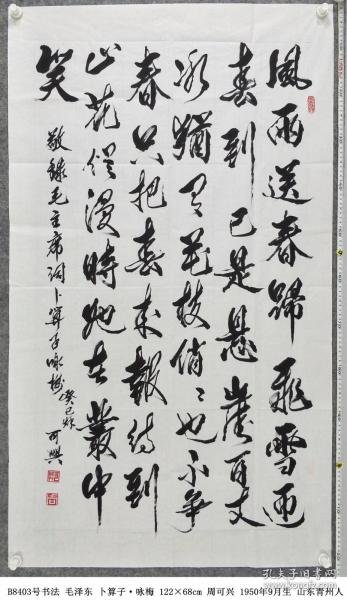 風雨送春歸飛雪迎
春到已是懸崖百丈
冰猶有花枝俏〻也不爭
春只把春來報待到
山花爛漫時她在叢中
笑
敬録毛主席詞卜算子咏梅
癸巳秋 可興
孔夫子旧书网
B8403号书法 毛泽东 卜算子·咏梅 122×68cm 周可兴 1950年9月生 山东青州人